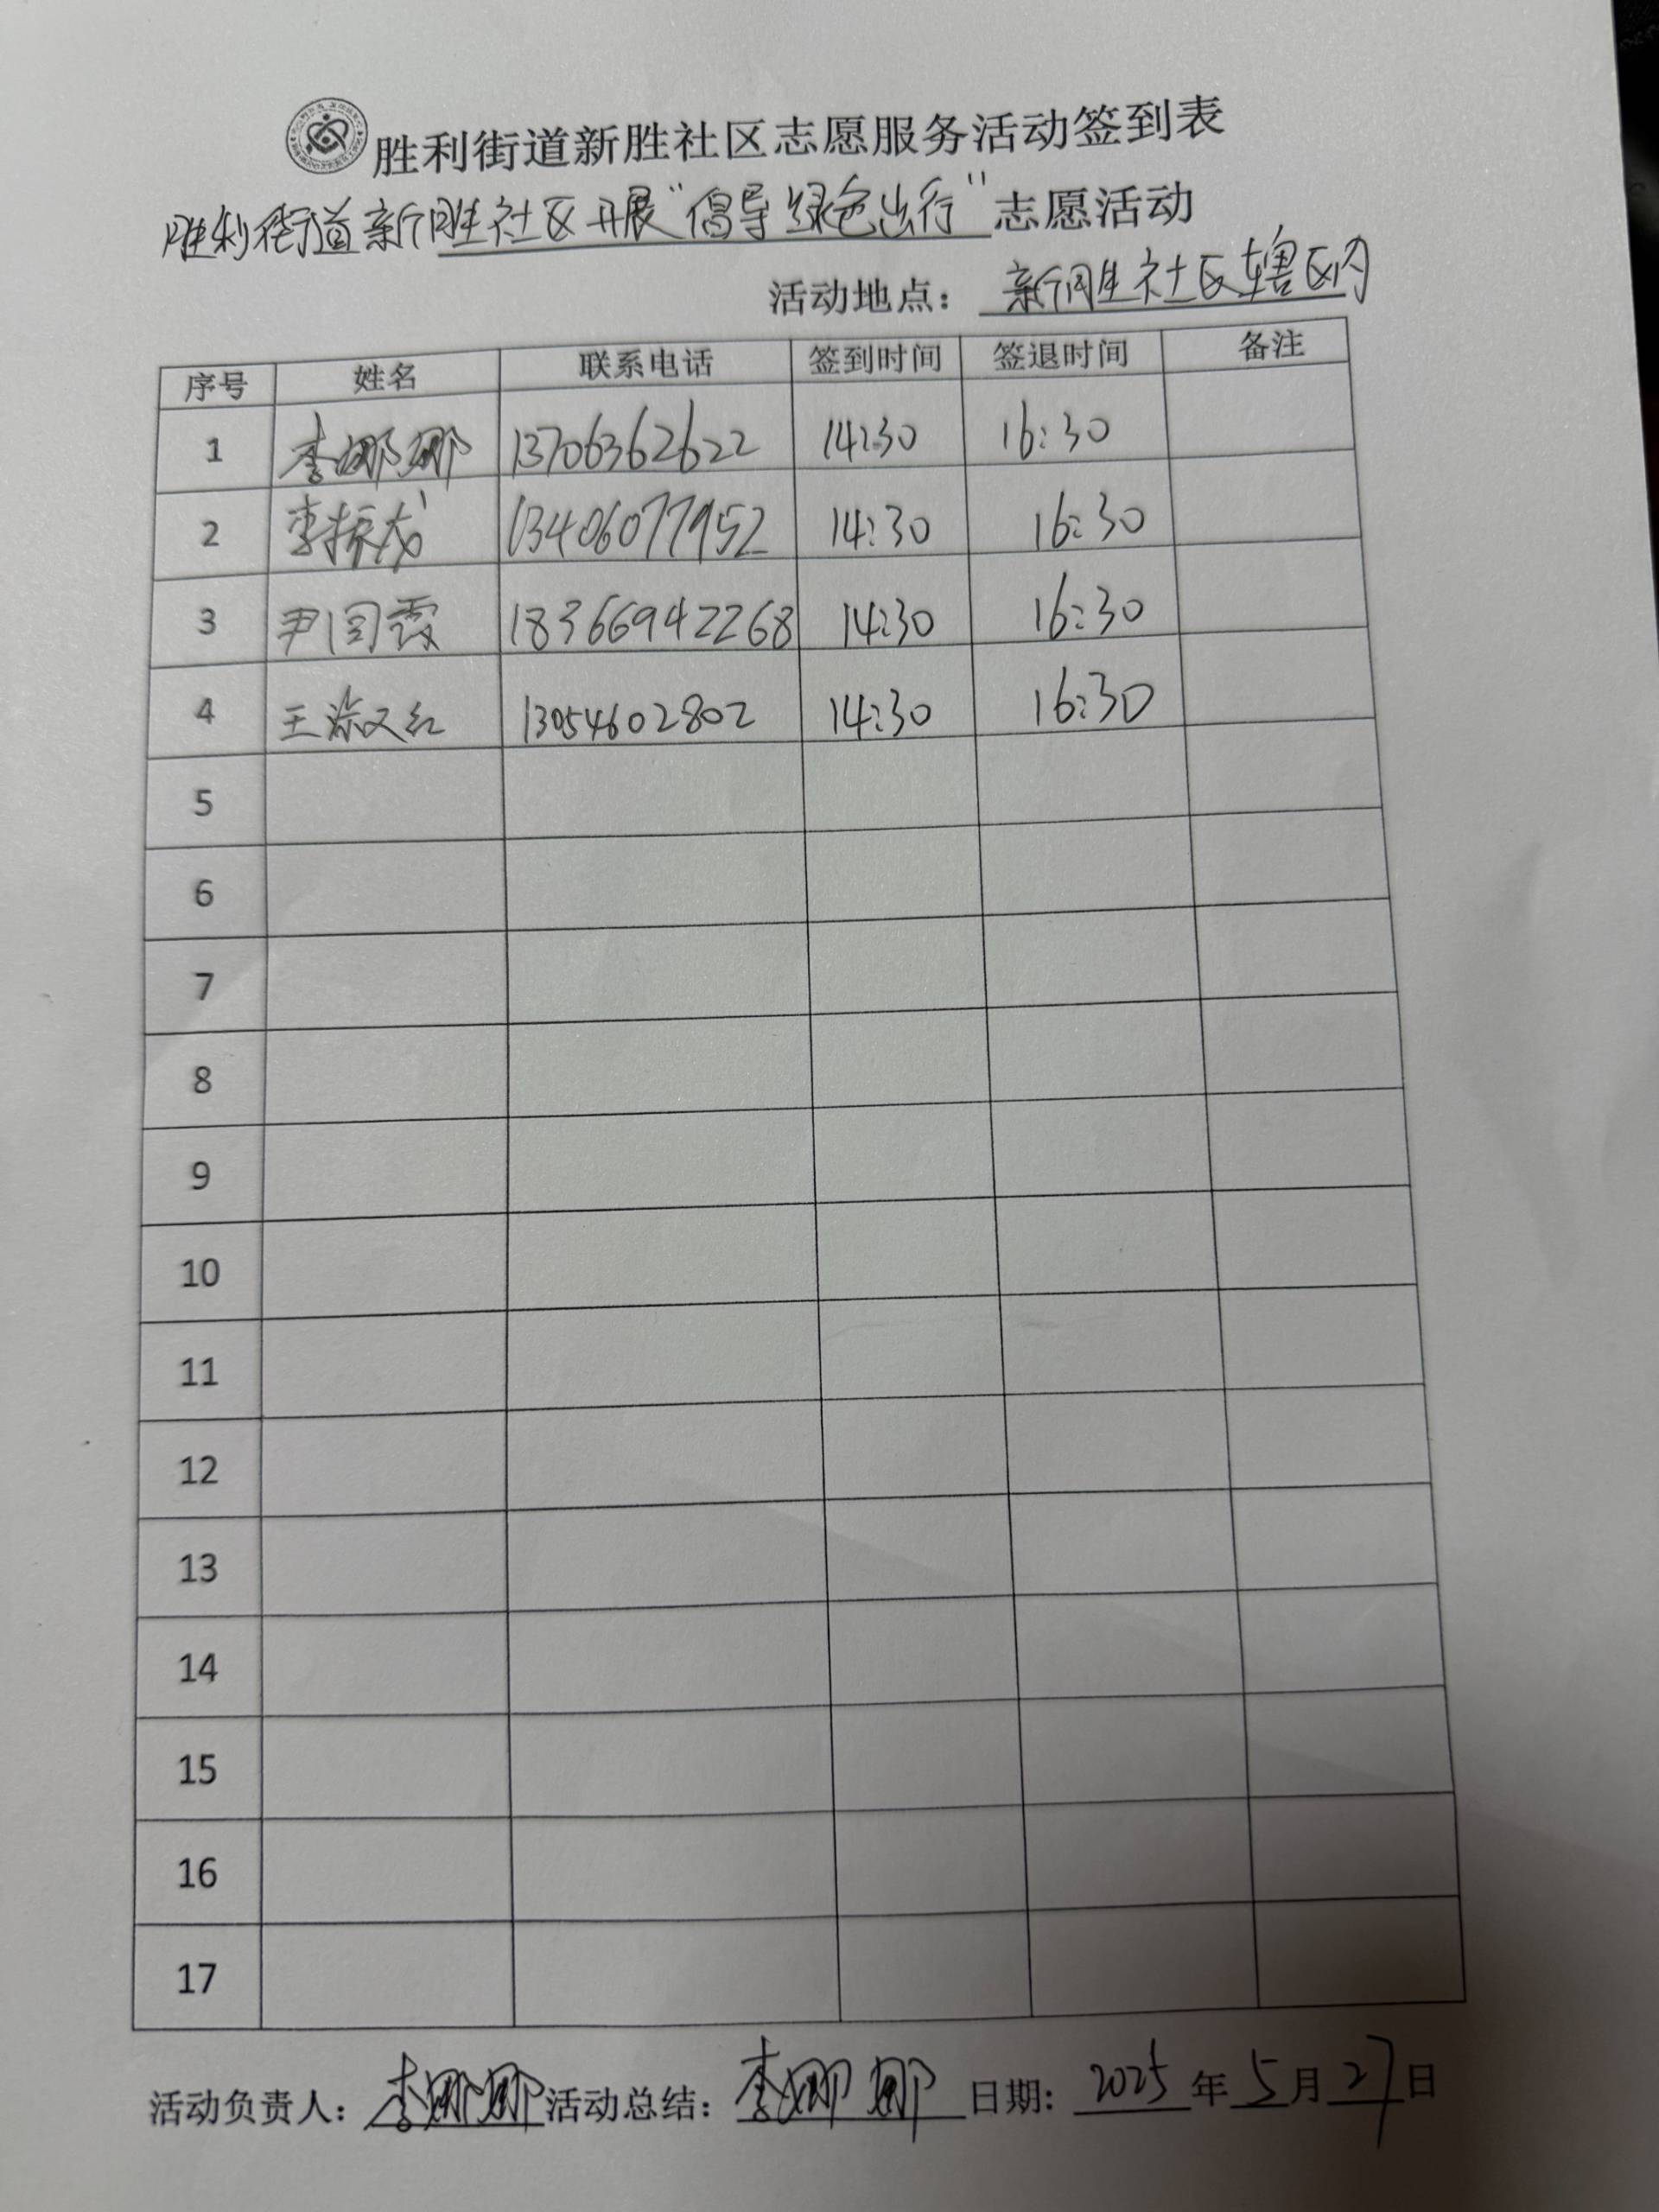 胜利街道新胜社区志愿服务活动签到表
胜利街道新胜社区开展“倡导绿色出行”志愿活动
活动地点：新胜社区辖区内
序号 姓名 联系电话 签到时间 签退时间 备注
1 李娜娜 13706362622 14:30 16:30
2 李振龙 13406077952 14:30 16:30
3 尹国霞 18366942268 14:30 16:30
4 王淑红 13054602802 14:30 16:30
5
6
7
8
9
10
11
12
13
14
15
16
17
活动负责人：李娜娜 活动总结：李娜娜 日期：2025年5月27日